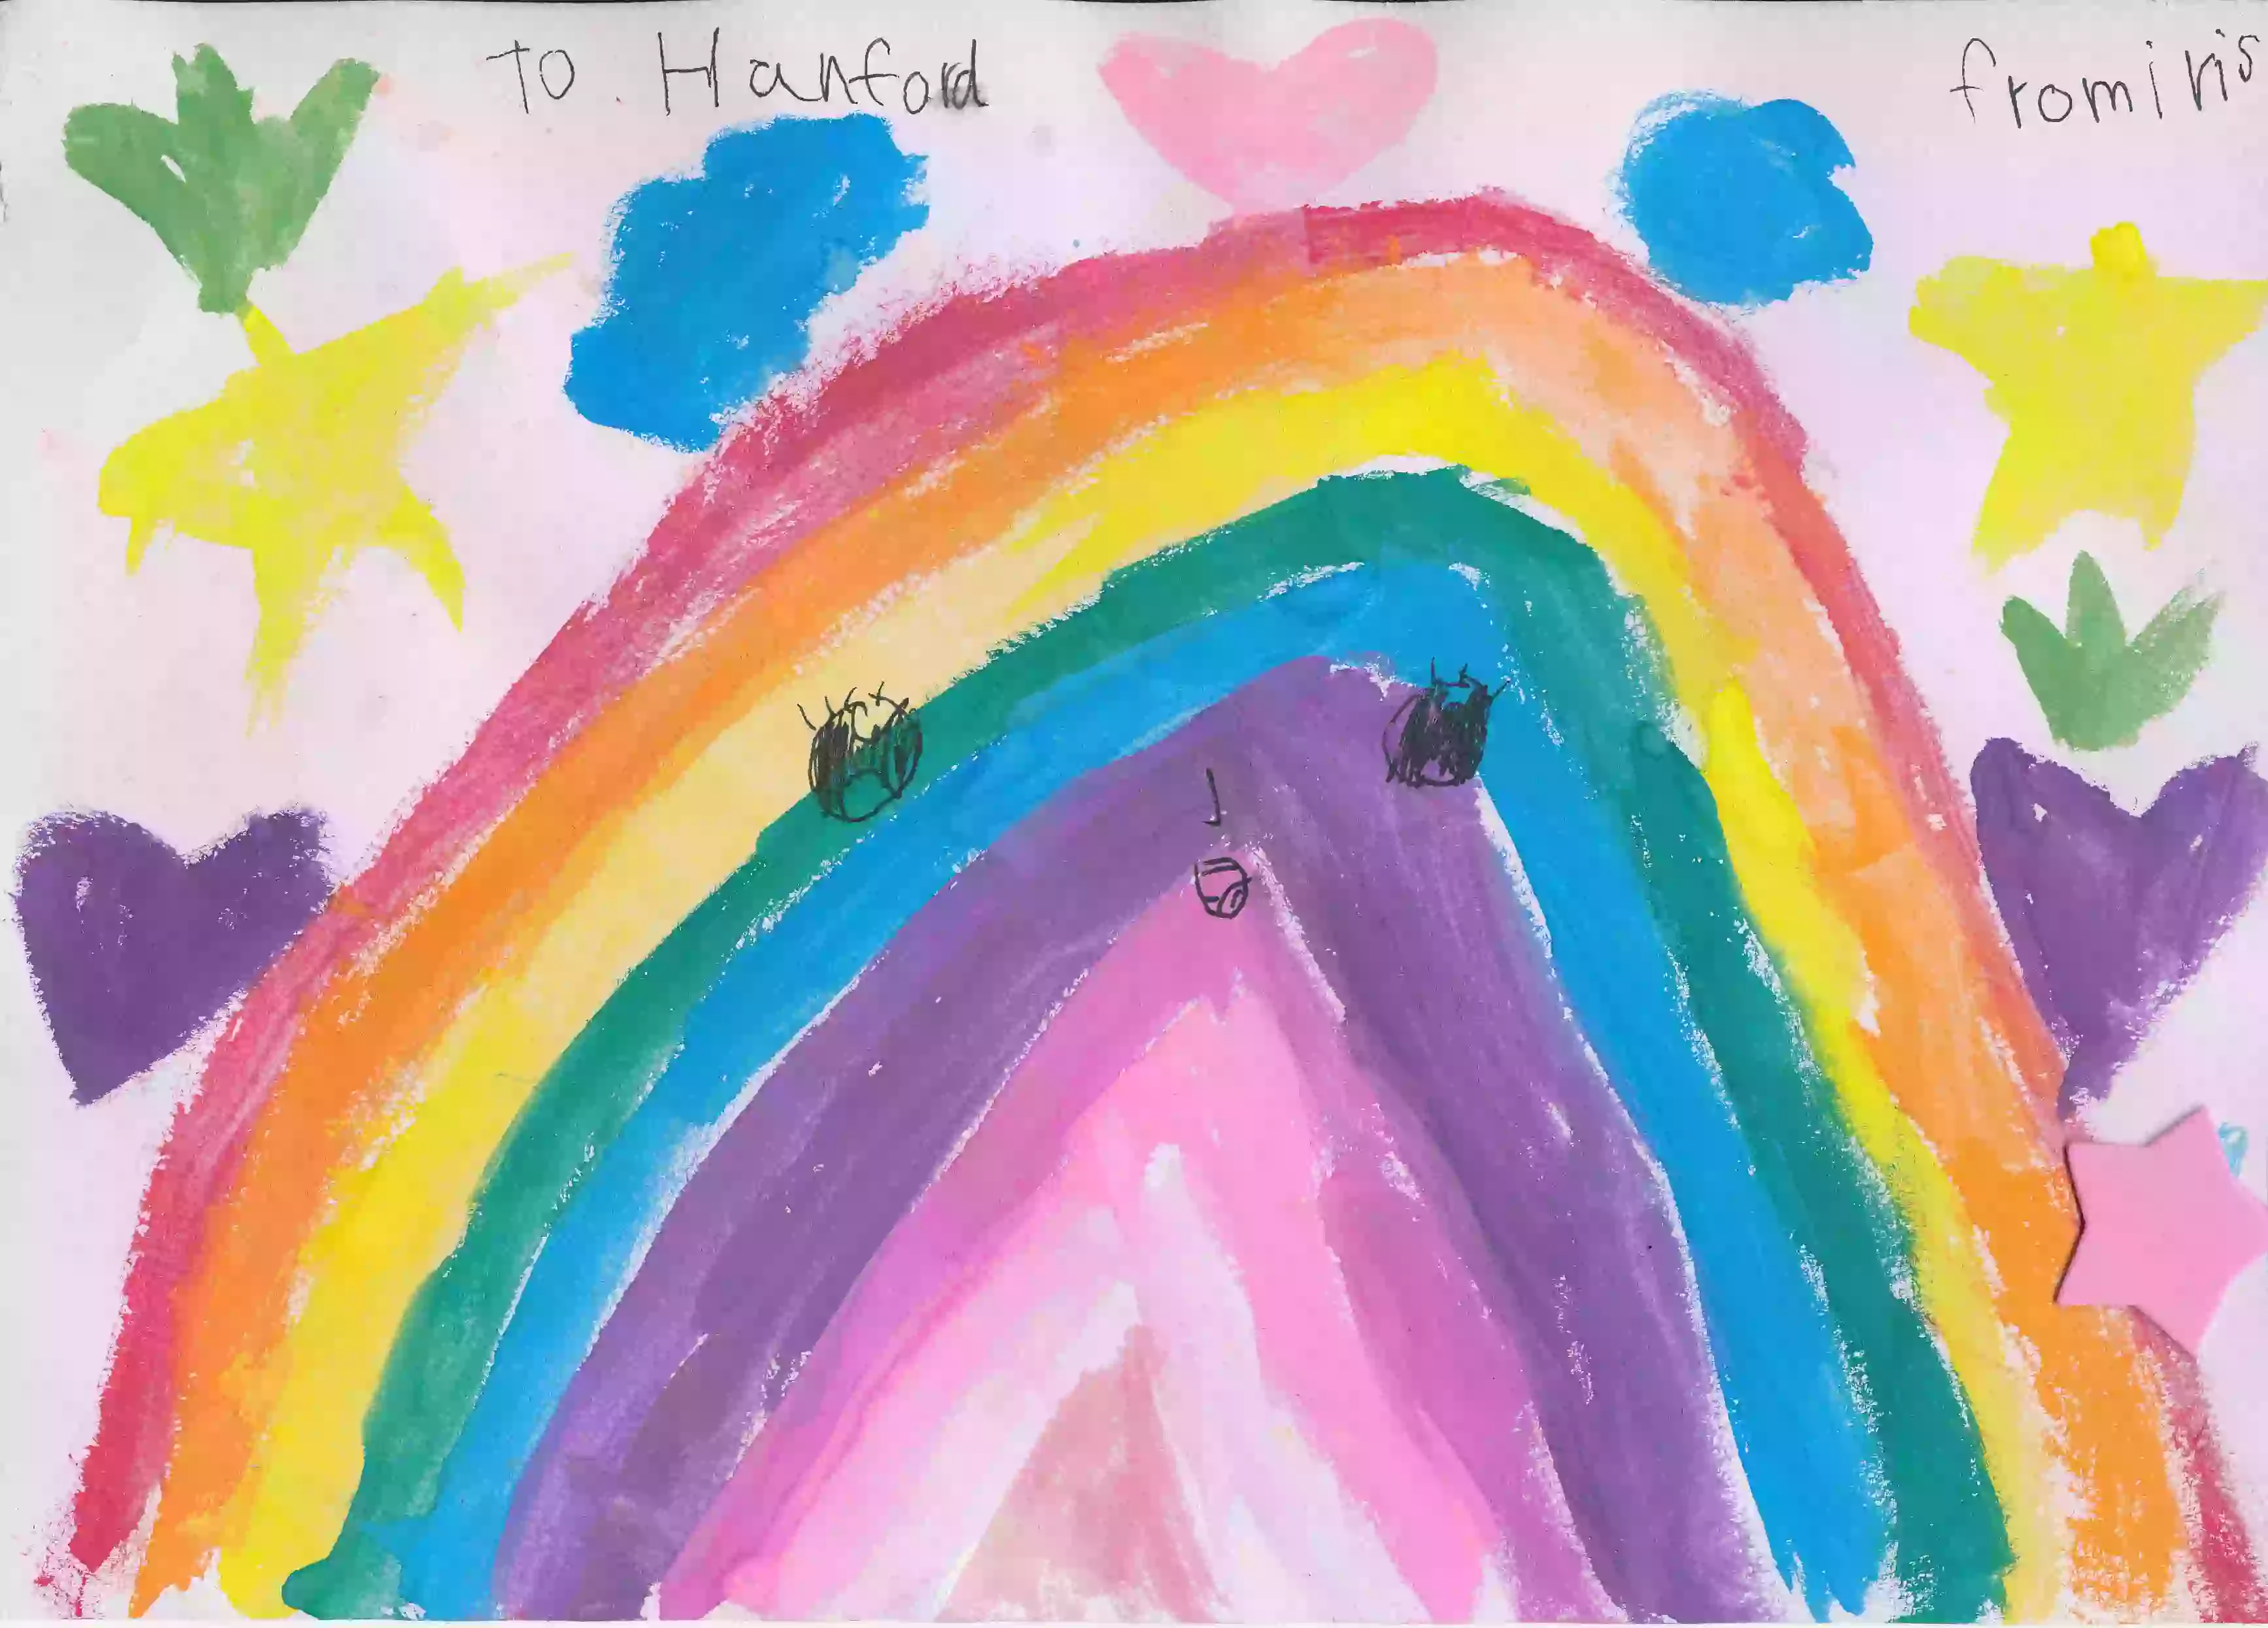 To Hanford
from iris